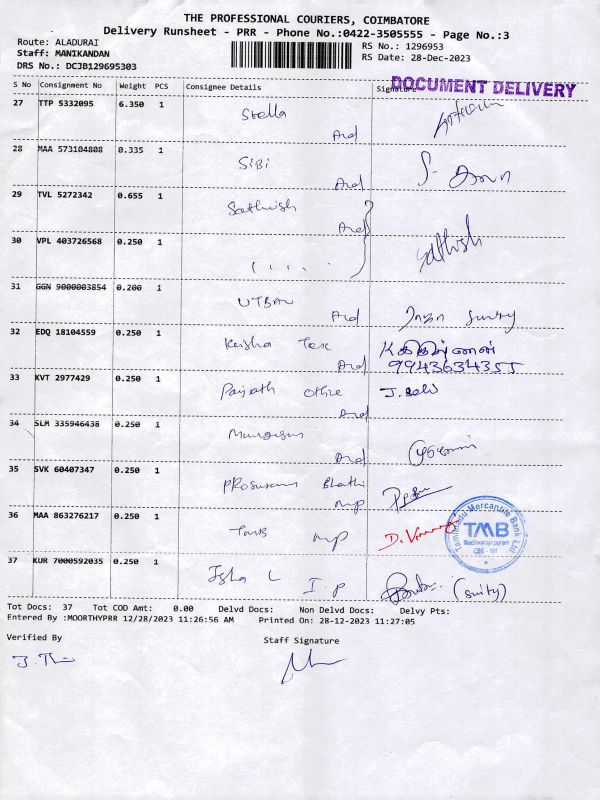 THE PROFESSIONAL COURIERS, COIMBATORE
Delivery Runsheet - PRR - Phone No.:0422-3505555 - Page No.:3
Route: ALADURAI
Staff: MANIKANDAN
DRS No.: DCJB129695303
RS No.: 1296953
RS Date: 28-Dec-2023
DOCUMENT DELIVERY
S No Consignment No Weight PCS Consignee Details Signature
27 TTP 5332095 6.350 1 Stella
28 MAA 573104808 0.335 1 SiBi
29 TVL 5272342 0.655 1 Sathish
30 VPL 403726568 0.250 1 Sathish
31 GGN 9000003854 0.200 1
32 EDQ 18104559 0.250 1 Keisha Tex
9943634355
33 KVT 2977429 0.250 1 office
34 SLM 335946438 0.250 1 Murugesan
35 SVK 60407347 0.250 1
36 MAA 863276217 0.250 1 TMB
Tamilnad Mercantile Bank Ltd
TMB
CBE
37 KUR 7000592035 0.250 1 Isha
Tot Docs: 37 Tot COD Amt: 0.00 Delvd Docs: Non Delvd Docs: Delvy Pts:
Entered By :MOORTHYPRR 12/28/2023 11:26:56 AM Printed On: 28-12-2023 11:27:05
Verified By Staff Signature